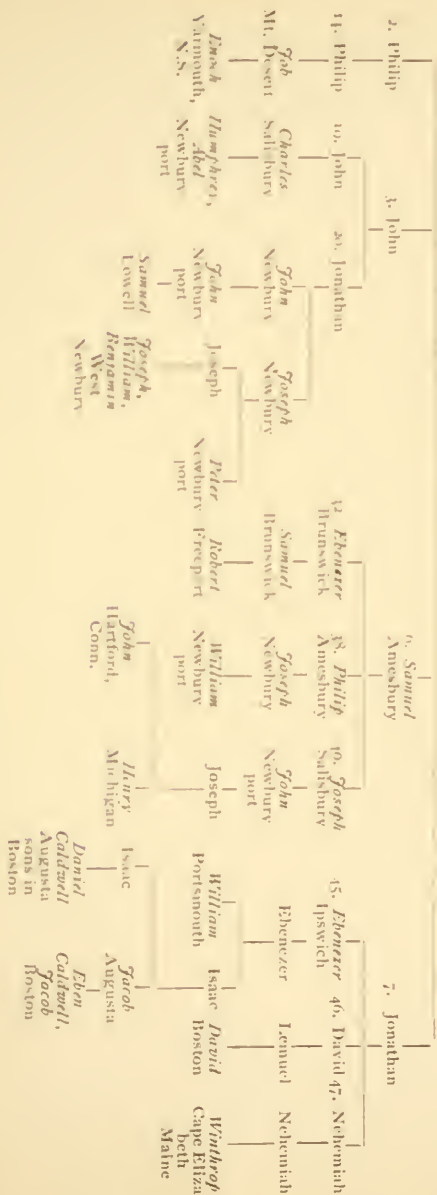 2. Philip
3. John
6. Samuel
Amesbury
7. Jonathan
14. Philip
19. John
20. Jonathan
32. Ebenezer
Brunswick
38. Philip
Amesbury
40. Joseph
Salisbury
45. Ebenezer
Ipswich
46. David
47. Nehemiah
Job
Mt. Desert
Charles
Salisbury
John
Newbury
Joseph
Newbury
Samuel
Brunswick
Joseph
Newbury
John
Newbury
port
Ebenezer
Lemuel
Nehemiah
Enoch
Yarmouth,
N.S.
Humphrey,
Abel
Newbury
port
John
Newbury
port
Joseph
Peter
Newbury
port
Robert
Freeport
William
Newbury
port
Joseph
William
Portsmouth
Isaac
David
Boston
Winthrop
Cape Eliza
beth
Maine
Samuel
Lowell
Joseph,
William,
Benjamin
West
Newbury
John
Hartford,
Conn.
Henry
Michigan
Isaac
Jacob
Augusta
Daniel
Caldwell
Augusta
sons in
Boston
Eben
Caldwell,
Jacob
Boston